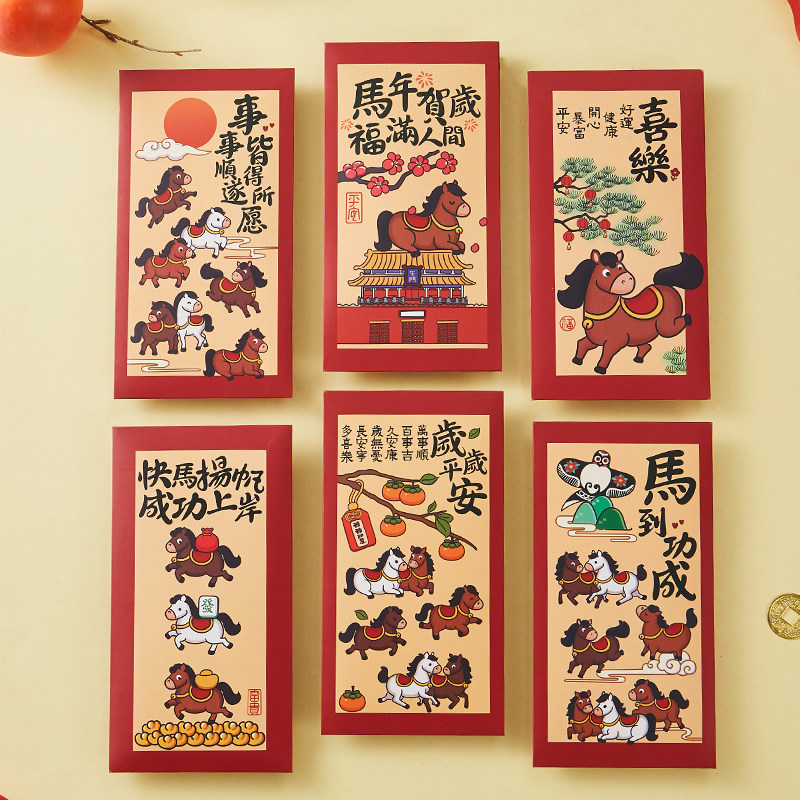 事事順遂
皆得所愿
馬年賀歲
福滿人間
平安
午門
喜樂
好運
健康
開心
暴富
平安
福
快馬揚帆
成功上岸
發
富貴
歲歲平安
萬事順
百事吉
久安康
歲無憂
長安寧
多喜樂
馬到功成